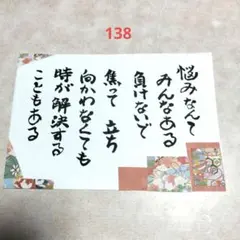 138
悩みなんて
みんなある
負けないで
焦って 立ち
向かわなくても
時が解決する
こともある